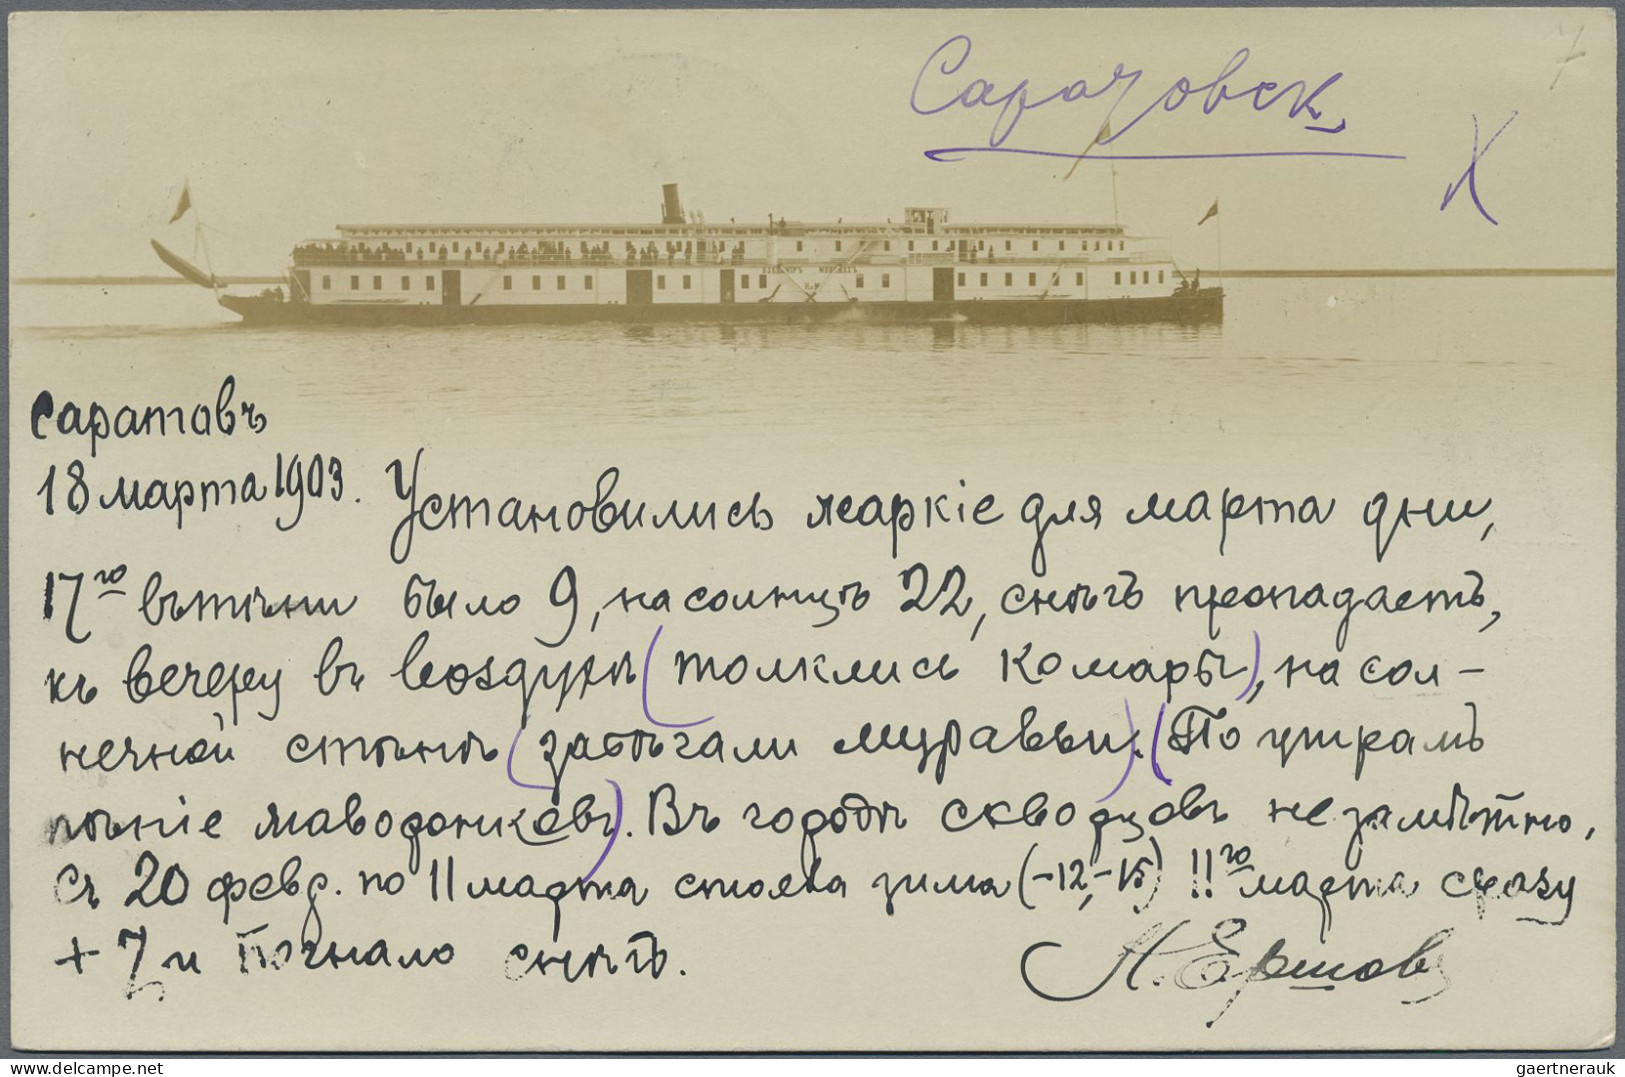 Саратовск.
7
X
Саратовъ
18 марта 1903. Установились жаркіе для марта дни,
17го въ тѣни было 9, на солнцѣ 22, снѣгъ пропадаетъ,
къ вечеру въ воздухѣ (толклись комары), на сол-
нечной стѣнѣ (забѣгали муравьи). (По утрамъ
пѣніе жаворонковъ). Въ городѣ скворцовъ не замѣтно,
Съ 20 февр. по 11 марта стояла зима (-12,-15) 11го марта сразу
+7 и погнало снѣгъ. Н. Ершовъ
delcampe.net gaertnerauk